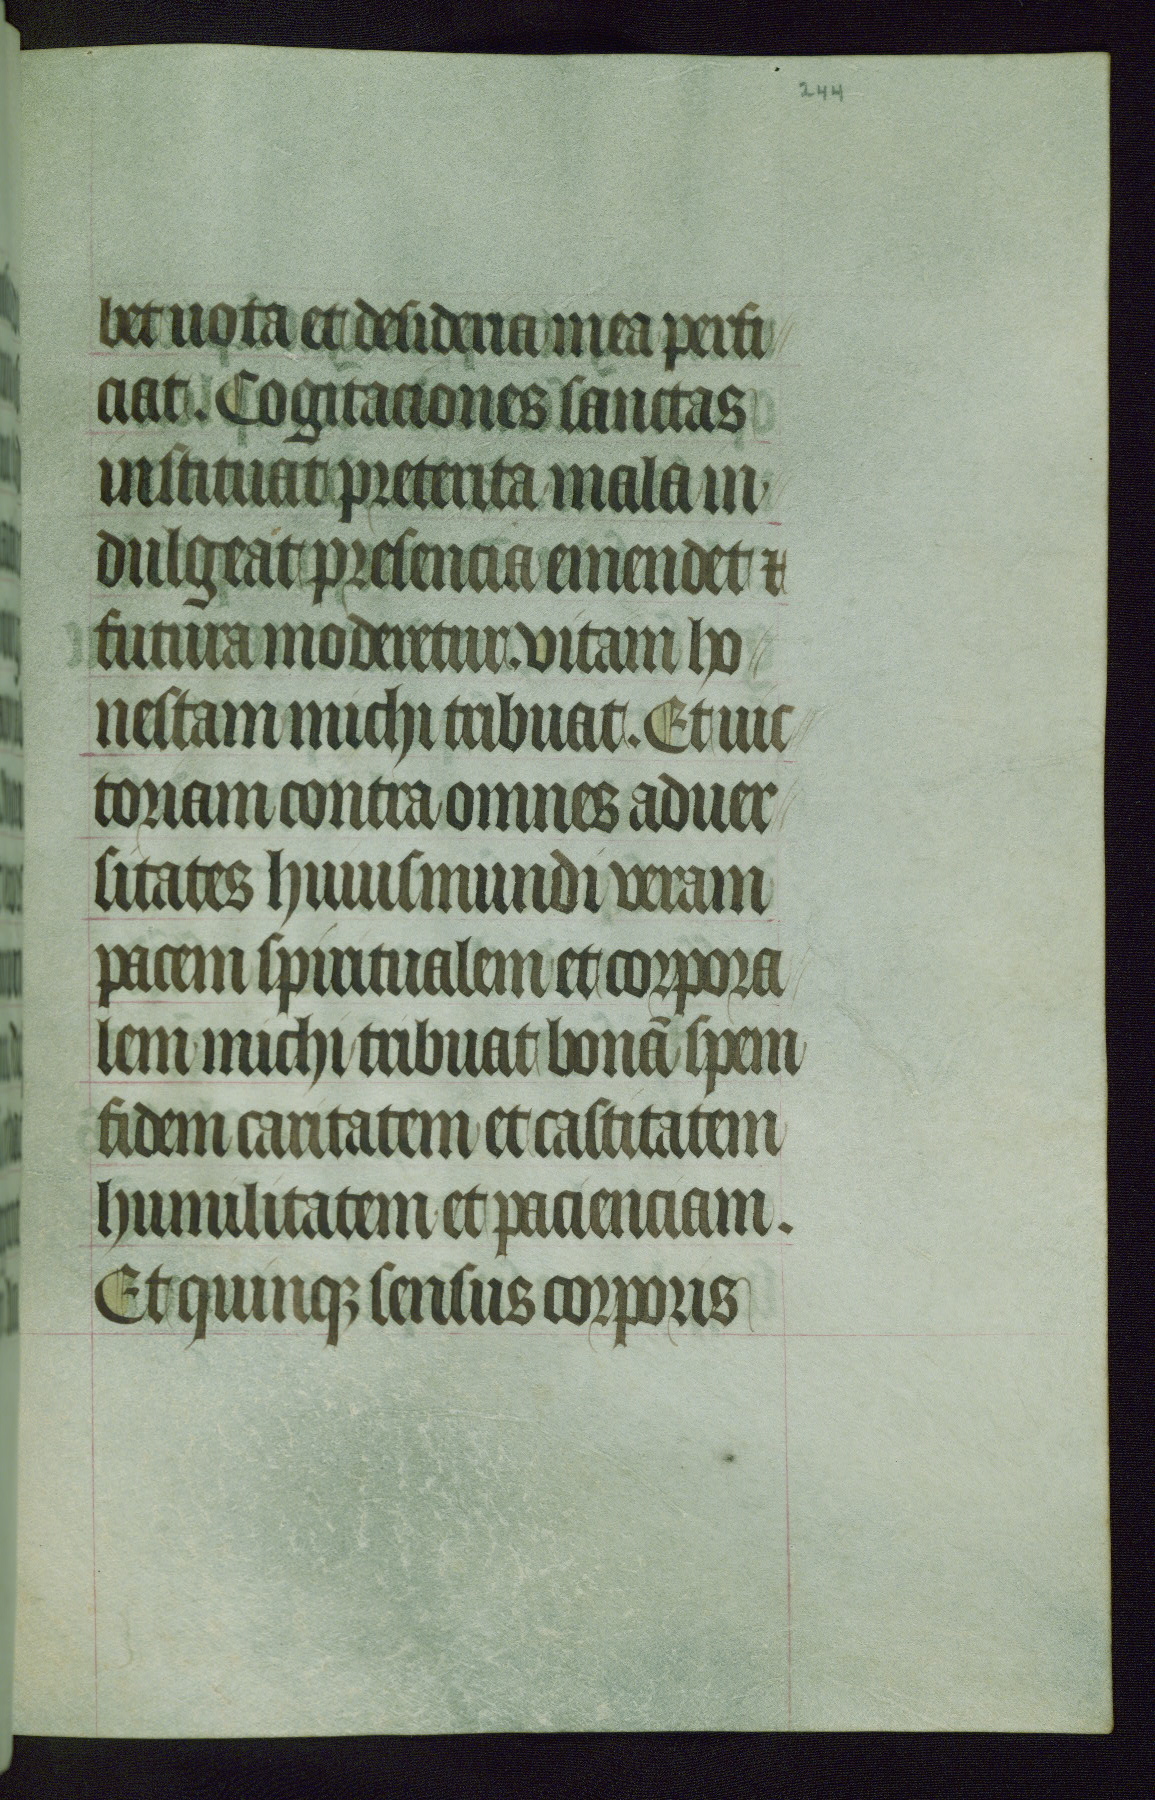 244
bet uota et desideria mea perfi
ciat. Cogitaciones sanctas
instituat preterita mala in
dulgeat presencia emendet ⁊
futura moderetur. vitam ho
nestam michi tribuat. Et uic
toriam contra omnes aduer
sitates huiusmundi veram
pacem spiritualem et corpora
lem michi tribuat bonā spem
fidem caritatem et castitatem
humilitatem et pacienciam.
Et quinqꝫ sensus corporis